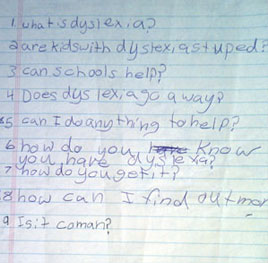 1. what is dyslexia?
2 are kids with dystexia stuped?
3 can schools help?
4 Does dyslexia go away?
5 can I do anything to help?
6 how do you know
you have dyslexia?
7 how do you get it?
8 how can I find out mor
9 Is it coman?